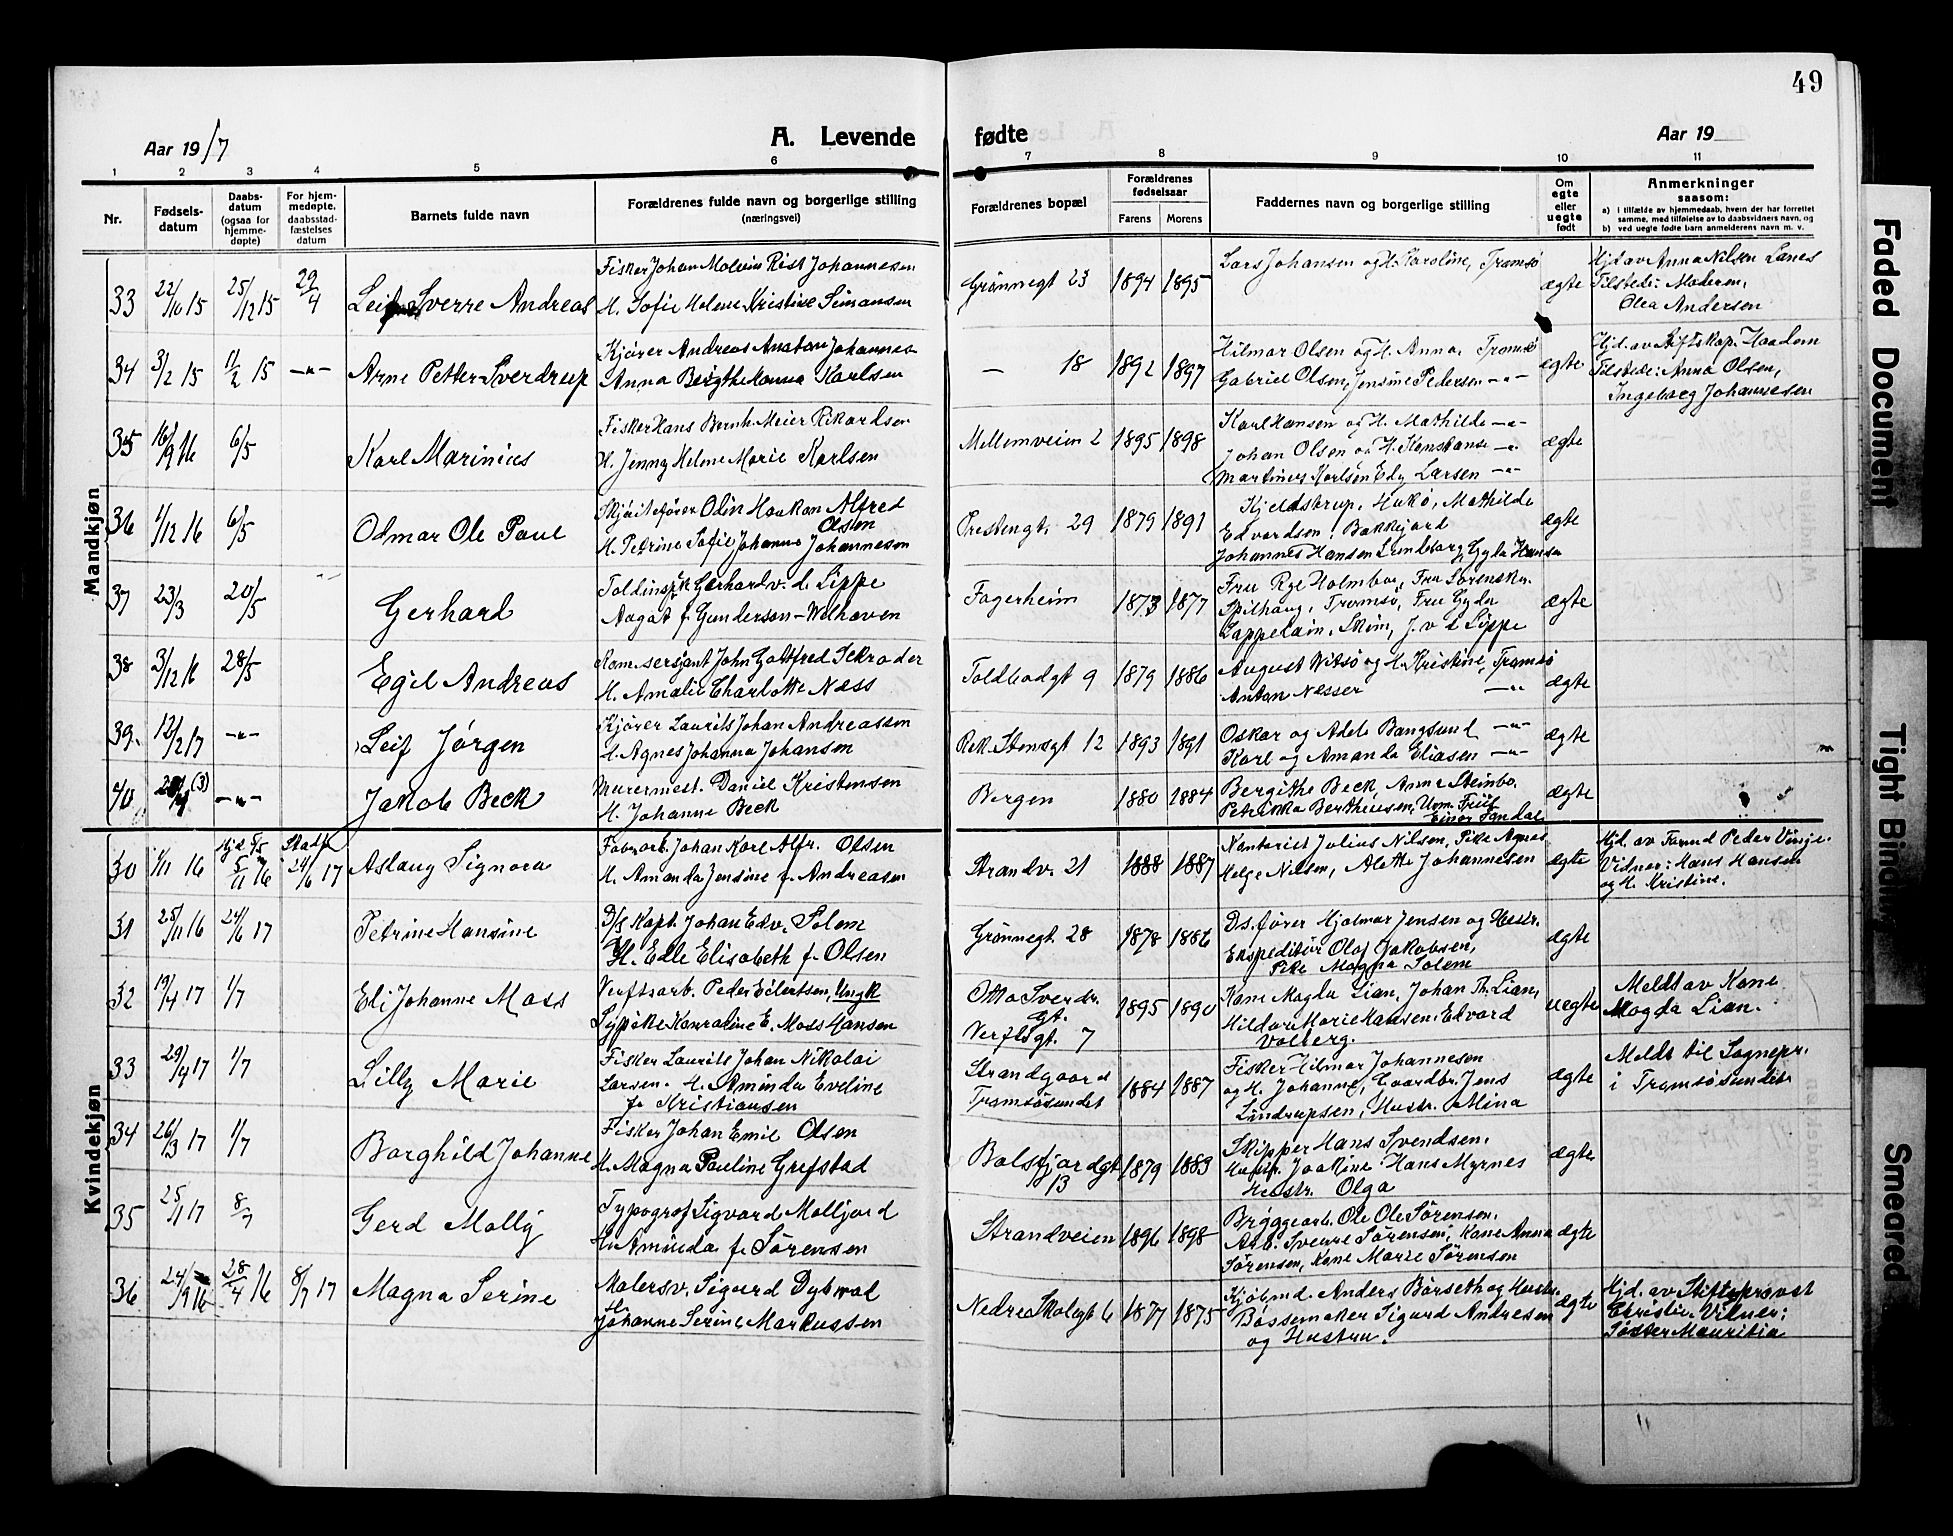 49
Aar 1917
A. Levende fødte
Aar 19
1 2 3 4 5 6 7 8 9 10 11
Nr.
Fødsels-
datum
Daabs-
datum
(ogsaa for
hjemme-
døpte)
For hjem-
medøpte,
daabsstad-
fæstelses
datum
Barnets fulde navn
Forældrenes fulde navn og borgerlige stilling
(næringsvei)
Forældrenes bopæl
Forældrenes
fødselsaar
Farens Morens
Faddernes navn og borgerlige stilling
Om
egte
eller
uegte
født
Anmerkninger
saasom:
a) i tilfælde av hjemmedaab, hvem der har forrettet
samme, med tilføielse av to daabsvidners navn, og
b) ved uegte fødte barn anmelderens navn m. v.
Mandkjøn
33 22/10 15 25/12 15 29/4 Leif Sverre Andreas
Fisker Johan Molvin Rist Johannesen
H. Sofie Helene Kristine Simonsen
Grønnegt 23 1894 1895
Lars Johansen og H. Karoline, Tromsø
ægte
Hjd av Anna Nilsen Lanes
Tilstede: Moderen,
Olea Andersen
34 3/2 15 11/2 15 -"- Arne Petter Sverdrup
Kjører Andreas Anaton Johannes
Anna Bergthe Hanna Karlsen
— 18 1892 1897
Hilmar Olsen og H. Anna, Tromsø
Gabriel Olsen, Jensine Pedersen -"-
ægte
Hjd. av Stiftskap. Haadem
Tilstede: Anna Olsen,
Ingeborg Johannesen
35 16/9 16 6/5 Karl Marinius
Fisker Hans Bernh. Meier Rikardsen
H. Jenny Helene Marie Karlsen
Mellemveien 2 1895 1898
Karl Hansen og H. Mathilde -"-
Johan Olsen og H. Konstanse -"-
Martines Karlsen Edy Larsen -"-
ægte
36 1/12 16 6/5 Odmar Ole Paul
Skjøitefører Odin Haakon Alfred
Olsen
H. Petrine Sofie Johanne Johannesen
Prestengt. 29 1879 1891
Kjeldstrup, Hakø, Mathilde
Edvardsen, Bakkejord
Johannes Hansen Lundeborg, Gyda Hansen
ægte
37 23/3 20/5 Gerhard
Toldinspk Gerhard v. d. Lippe
Aagot f. Gundersen-Welhaven
Fagerheim 1873 1877
Fru Rye Holmboe, Fru Sorenskr.
Spilhaug, Tromsø, Fru Gyda
Cappelain, Skien, J. v d Lippe
ægte
38 3/12 16 28/5 Egil Andreas
Kom.sersjant John Gottfred Schrøder
H. Amalie Charlotte Næss
Toldbodgt 9 1879 1886
August Witsø og H. Kristine, Tromsø
Anton Nesser -"-
ægte
39. 12/2 17 -"- Leif Jørgen
Kjører Laurits Johan Andreassen
H. Agnes Johanna Johansen
Rek. Stensgt 12 1893 1891
Oskar og Adele Bangsund -"-
Karl og Amanda Eliasen -"-
ægte
40 (3) -"- Jakob Beck
Murermest. Daniel Kristensen
H. Johanne Beck
Bergen 1880 1884
Bergithe Beck, Anna Steinbo,
Petrikka Bertheusen,
Einar Sandal
ægte
Kvindekjøn
30 1/11 16 Hjd. 5/11 16 Stadf. 24/6 17 Aslaug Signora
Fabrarb. Johan Karl Alfr. Olsen
H. Amanda Jensine f. Andreasen
Strandv. 21 1888 1887
Kontorist Julius Nilsen, Pike Agnes
Helge Nilsen, Alette Johannesen
ægte
Hjd. av Formd Peder
Vidner: Hans Hansen
og H. Kristine.
31 25/11 16 24/6 17 Petrine Hansine
D/S Kapt. Johan Edv. Solem
H. Edle Elisabeth f. Olsen
Grønnegt. 28 1878 1886
Ds.fører Hjalmar Jensen og Hustr.
Ekspeditør Olaf Jakobsen,
Pike Magna Solem
ægte
32 19/4 17 1/7 Eli Johanne Moss
Verftsarb. Peder Eilertsen, Ungk
Sypike Konradine E. Moss Hansen
Otto Sverdr.
gt.
Verftsgt. 7
1895 1890
Kone Magda Lian, Johan Th. Lian,
Hildur Marie Hansen, Edvard
Volberg.
uegte
Meldt av Kone
Magda Lian.
33 29/4 17 1/7 Lilly Marie
Fisker Laurits Johan Nikolai
Larsen. H. Aminda Eveline
f. Kristiansen
Strandgaard
Tromsøsundet
1884 1887
Fisker Hilmar Johannesen
og H. Johanne, Gaardbr. Jens
Lindrupsen, Hustr. Mina
ægte
Meldt til Sognepr.
i Tromsøsundet
34 26/3 17 1/7 Borghild Johanne
Fisker Johan Emil Olsen
H. Magna Pauline Grefstad
Balsfjordgt
13
1879 1883
Skipper Hans Svendsen.
Joakine. Hans Myrnes
Hustr. Olga
ægte
35 25/1 17 8/7 Gerd Molly
Typograf Sigvard Molljord
H. Aminda f. Sørensen
Strandveien 1896 1898
Bryggearb. Ole Ole Sørensen.
Arb. Sverre Sørensen, Kone Anna
Sørensen, Kone Marie Sørensen
ægte
36 24/9 16 28/4 16 8/7 17 Magna Serine
Malersv. Sigurd Dybwad
H.
Johanne Serine Markussen
Nedre Skolegt 6 1877 1875
Kjøbmd. Anders Børseth og Hustr.
Bøssemaker Sigurd Andresen
og Hustru.
ægte
Hjd. av Stiftsprovst
Christie. Vidner:
Søster Mauritia
Faded Document
Tight Binding
Smeared